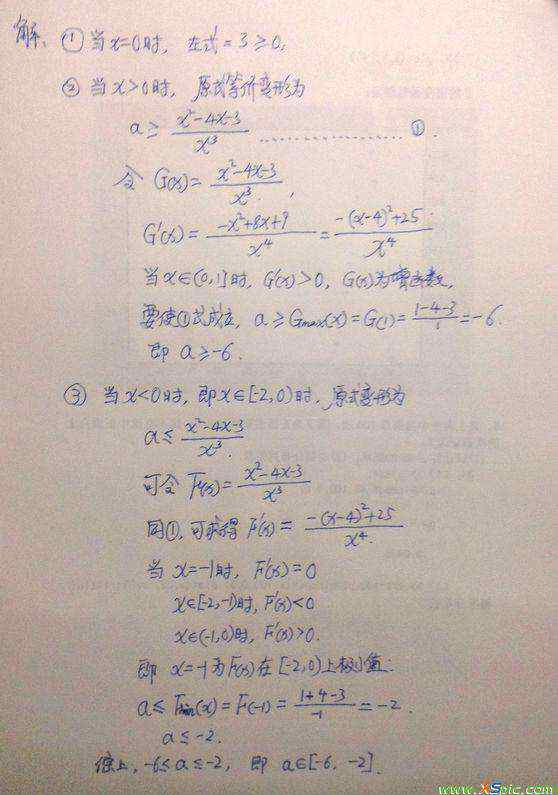 解: ① 当 x=0时, 左式=3≥0,
② 当 x>0时, 原式等价变形为
a≥ (x²-4x-3)/x³ ………………… ①.
令 G(x)= (x²-4x-3)/x³,
G'(x)= (-x²+8x+9)/x⁴ = (-(x-4)²+25)/x⁴.
当 x∈(0,1]时, G'(x)>0, G(x)为增函数,
要使①式成立, a≥Gmax(x)=G(1)= (1-4-3)/1 =-6.
即 a≥-6.
③ 当 x<0时, 即x∈[-2,0)时, 原式变形为
a≤ (x²-4x-3)/x³.
可令 F(x)= (x²-4x-3)/x³
同①, 可求得 F'(x)= (-(x-4)²+25)/x⁴.
当 x=-1时, F'(x)=0
x∈[-2,-1)时, F'(x)<0
x∈(-1,0)时, F'(x)>0.
即 x=-1为F(x)在[-2,0)上极小值.
a≤Fmin(x)=F(-1)= (1+4-3)/-1 =-2.
a≤-2.
综上, -6≤a≤-2, 即 a∈[-6, -2].
www.XSpic.com